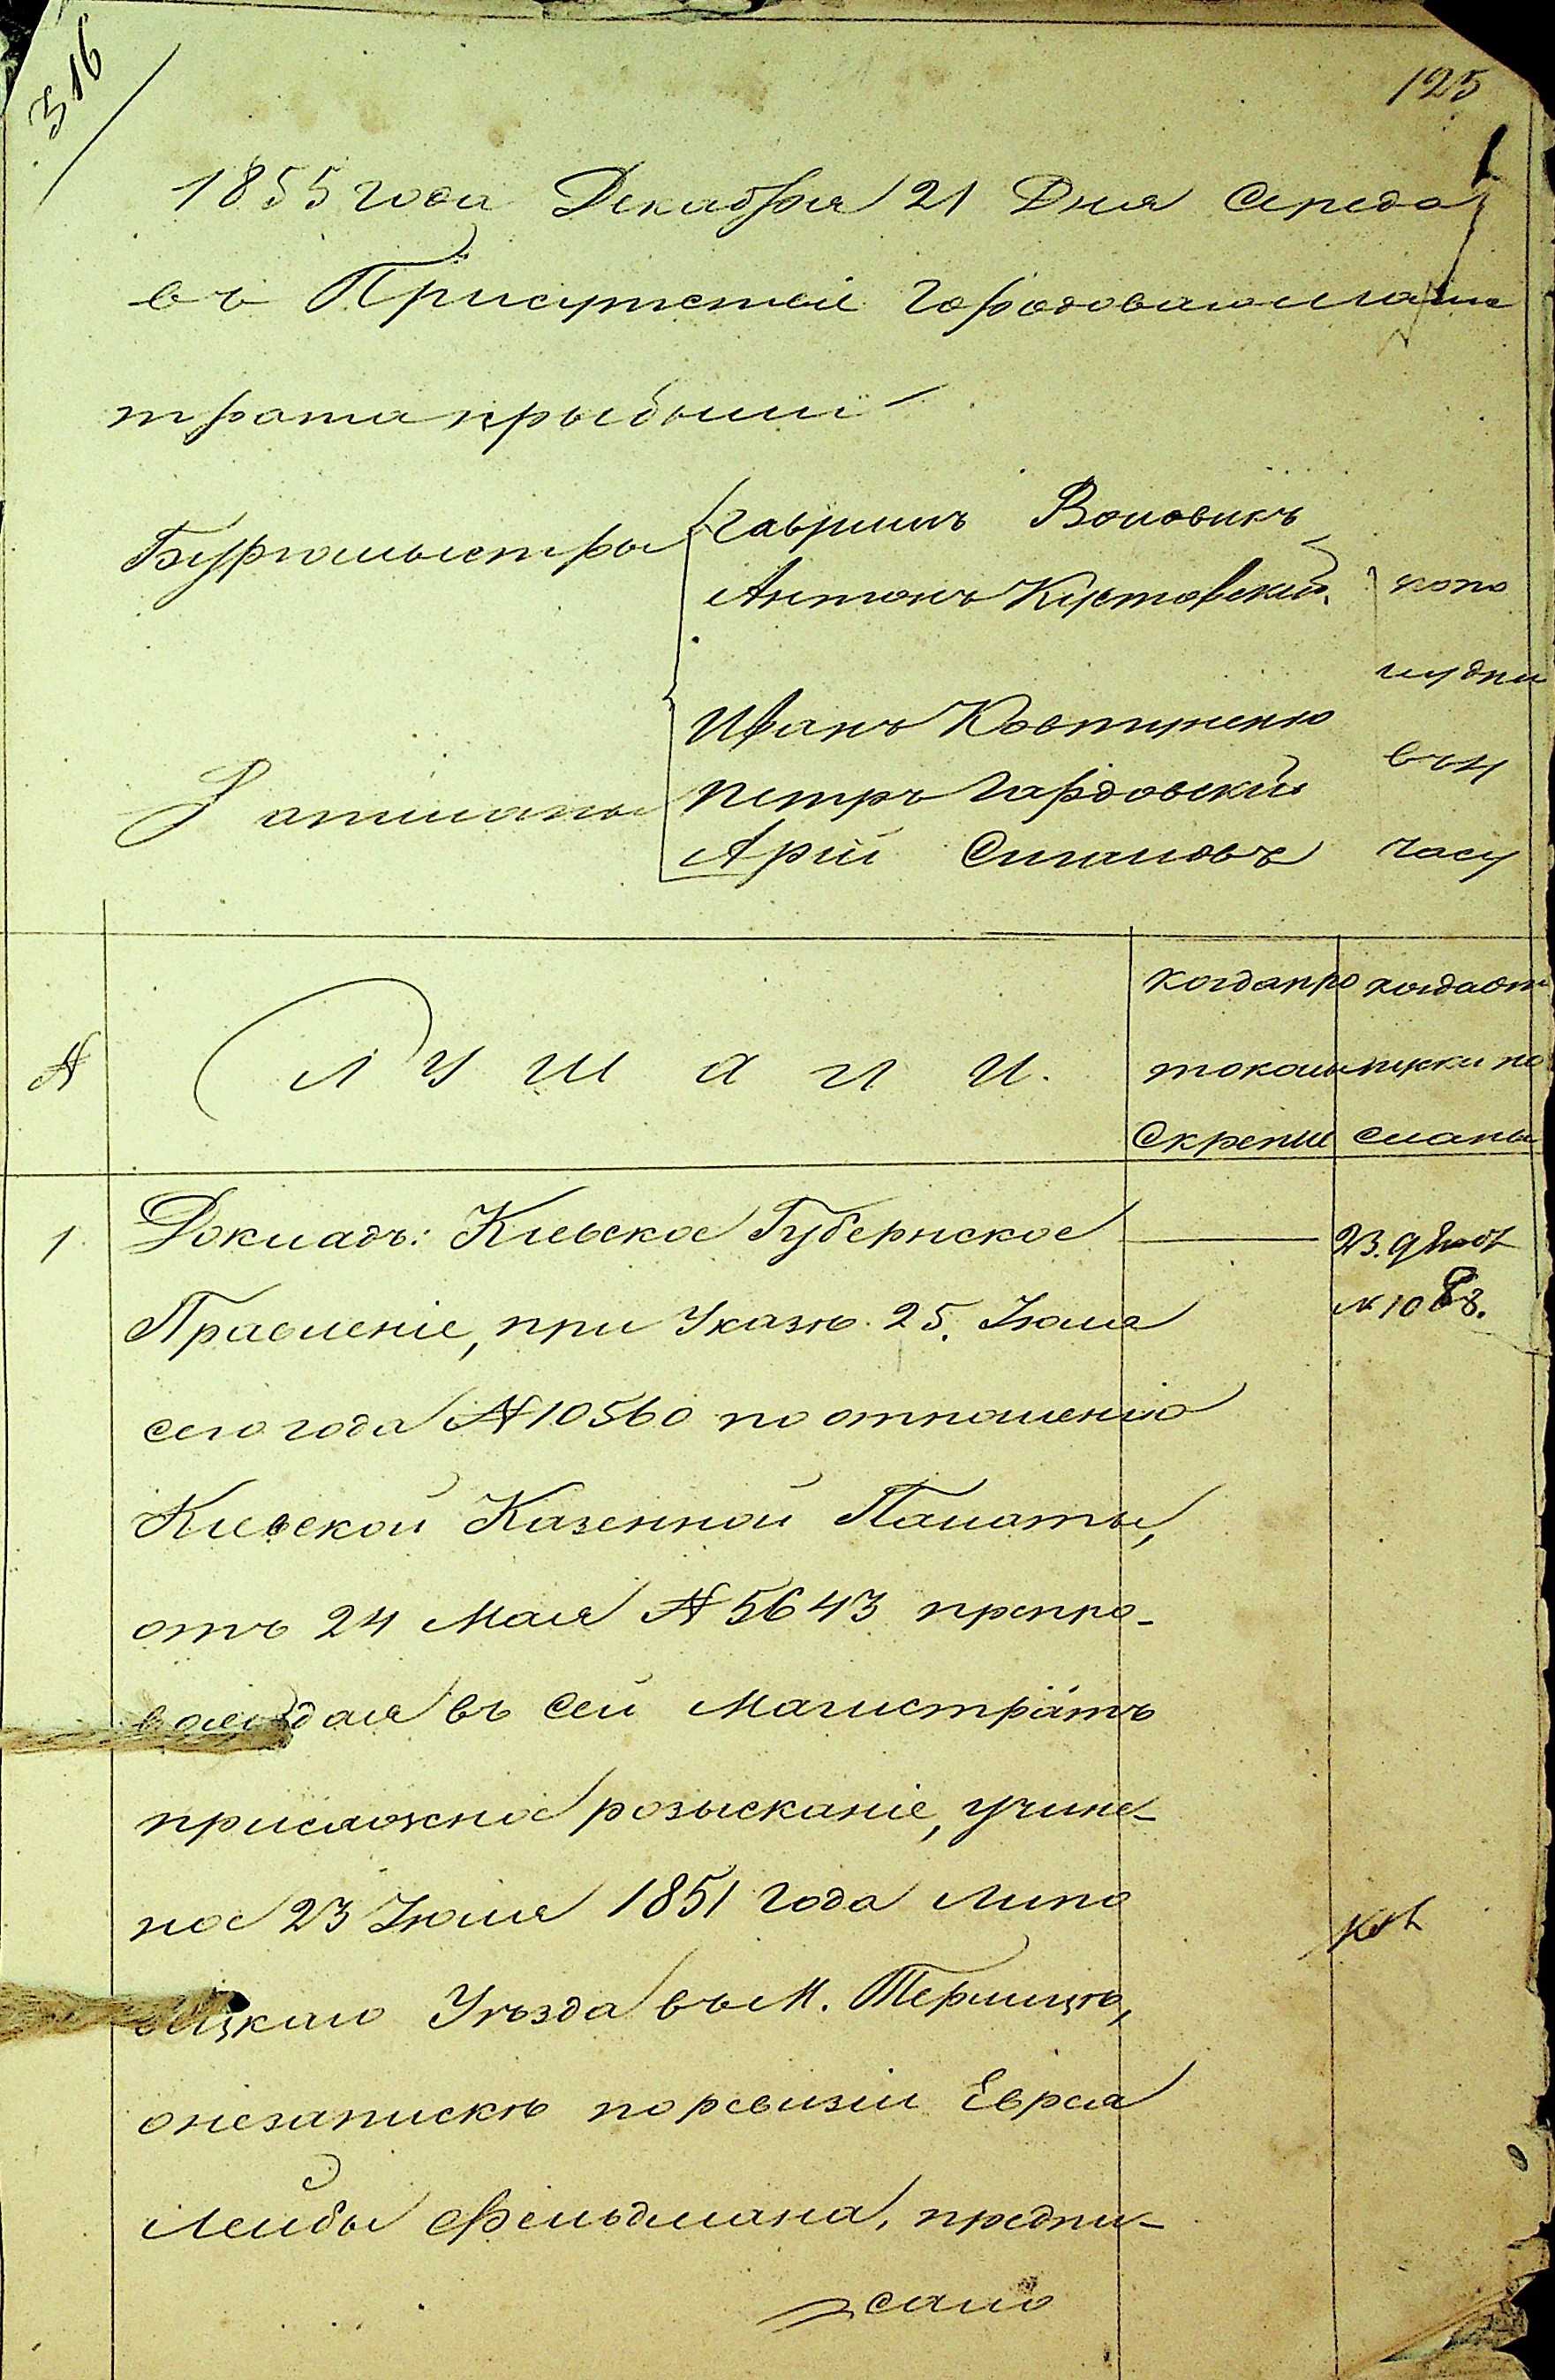 316
125
1855 года Декабря 21 Дня Середа
въ Присутствіе Городоваго Магис
трата прыбыли
Бургомыстры
Гаврыилъ Воловикъ
Антонъ Кустовский
Ратманы
Иванъ Костюченко
Петръ Гардовский
Арій
попо
лудни
въ 4
часу
№
Слушали.
Когда про
токолы
Скрепле
когда от
пуски по
сланы
1
Докладъ: Киевское Губернское
23. 9
№ 1088.
Правленіе, при Указѣ 25. Іюля
сего года № 10560 по отношенію
Киевской Казенной Палаты,
отъ 24 Мая № 5643 препро-
вождая въ сей Магистратъ
присяжное розысканіе, учине-
ное 23 Іюля 1851 года Липо
вецкаго Уѣзда въ М. Терлицѣ,
о незапискѣ по ревизіи Еврея
Лейбы Фельдмана, предпи-
сало